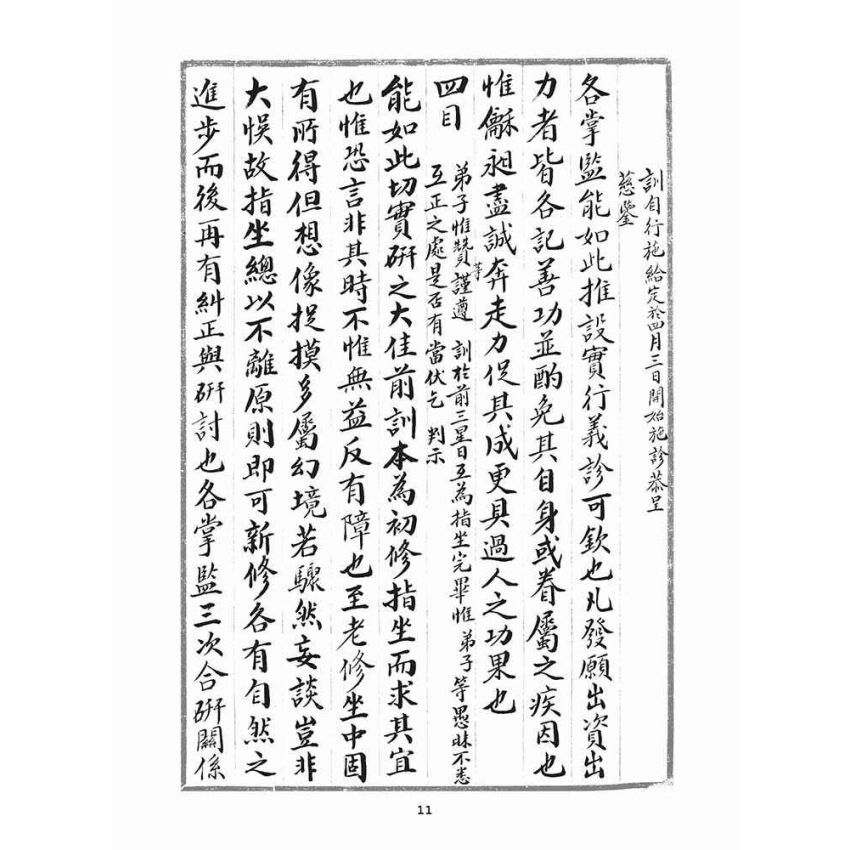 訓自行施給定於四月三日開始施診恭呈
慈鑒
各掌監能如此推設實行義診可欽也凡發願出資出
力者皆各記善功並酌免其自身或眷屬之疾因也
惟龢昶盡誠奔走力促其成更具過人之功果也
四目
弟子惟贊等謹遵 訓於前三星日互為指坐完畢惟 弟子等愚昧不悉
互正之處是否有當伏乞 判示
能如此切實研之大佳前訓本為初修指坐而求其宜
也惟恐言非其時不惟無益反有障也至老修坐中固
有所得但想像捉摸多屬幻境若驟然妄談豈非
大悞故指坐總以不離原則即可新修各有自然之
進步而後再有糾正與研討也各掌監三次合研關係
11